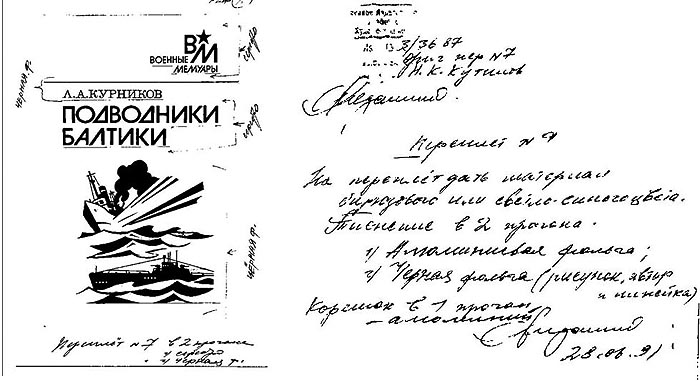 ВМ
ВОЕННЫЕ
МЕМУАРЫ
Л.А.КУРНИКОВ
ПОДВОДНИКИ
БАЛТИКИ
серебро
серебро
черная ф.
черная ф.
Переплет №7 в 2 прогона
1) серебро
2) черная ф.
3/3687
пер №7
Н.К. Кутилов
Переплёт №7
На переплёт дать материал
или светло-синего цвета.
Тиснение в 2 прогона.
1) Алюминиевая фольга;
2) Чёрная фольга (рисунок, автор
и линейка)
Корешок в 1 прогон
- алюминий